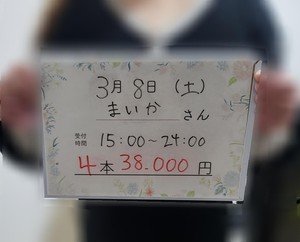 3月8日(土)
まいか さん
受付時間 15:00〜24:00
4本 38-000円